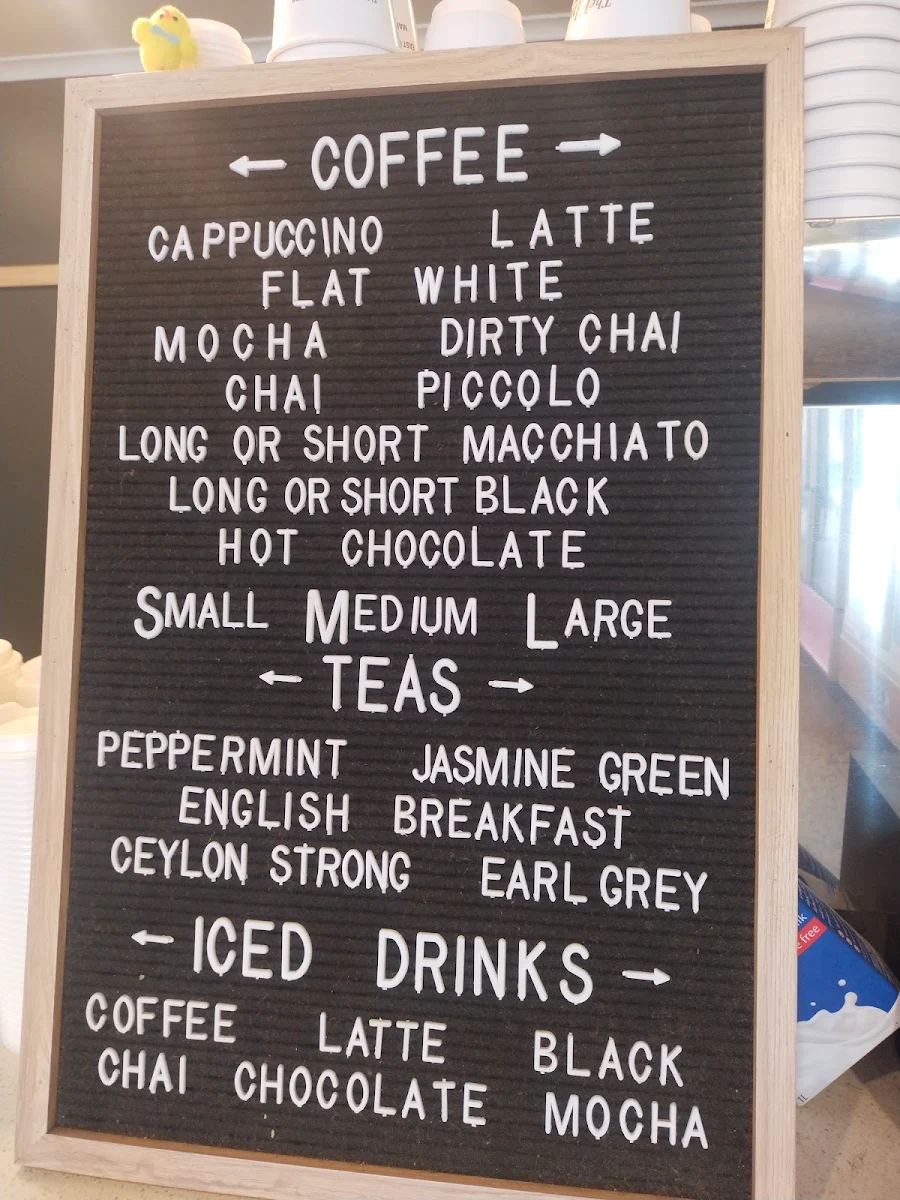 ← COFFEE →
CAPPUCCINO LATTE
FLAT WHITE
MOCHA DIRTY CHAI
CHAI PICCOLO
LONG OR SHORT MACCHIATO
LONG OR SHORT BLACK
HOT CHOCOLATE
SMALL MEDIUM LARGE
← TEAS →
PEPPERMINT JASMINE GREEN
ENGLISH BREAKFAST
CEYLON STRONG EARL GREY
← ICED DRINKS →
COFFEE LATTE BLACK
CHAI CHOCOLATE MOCHA
free